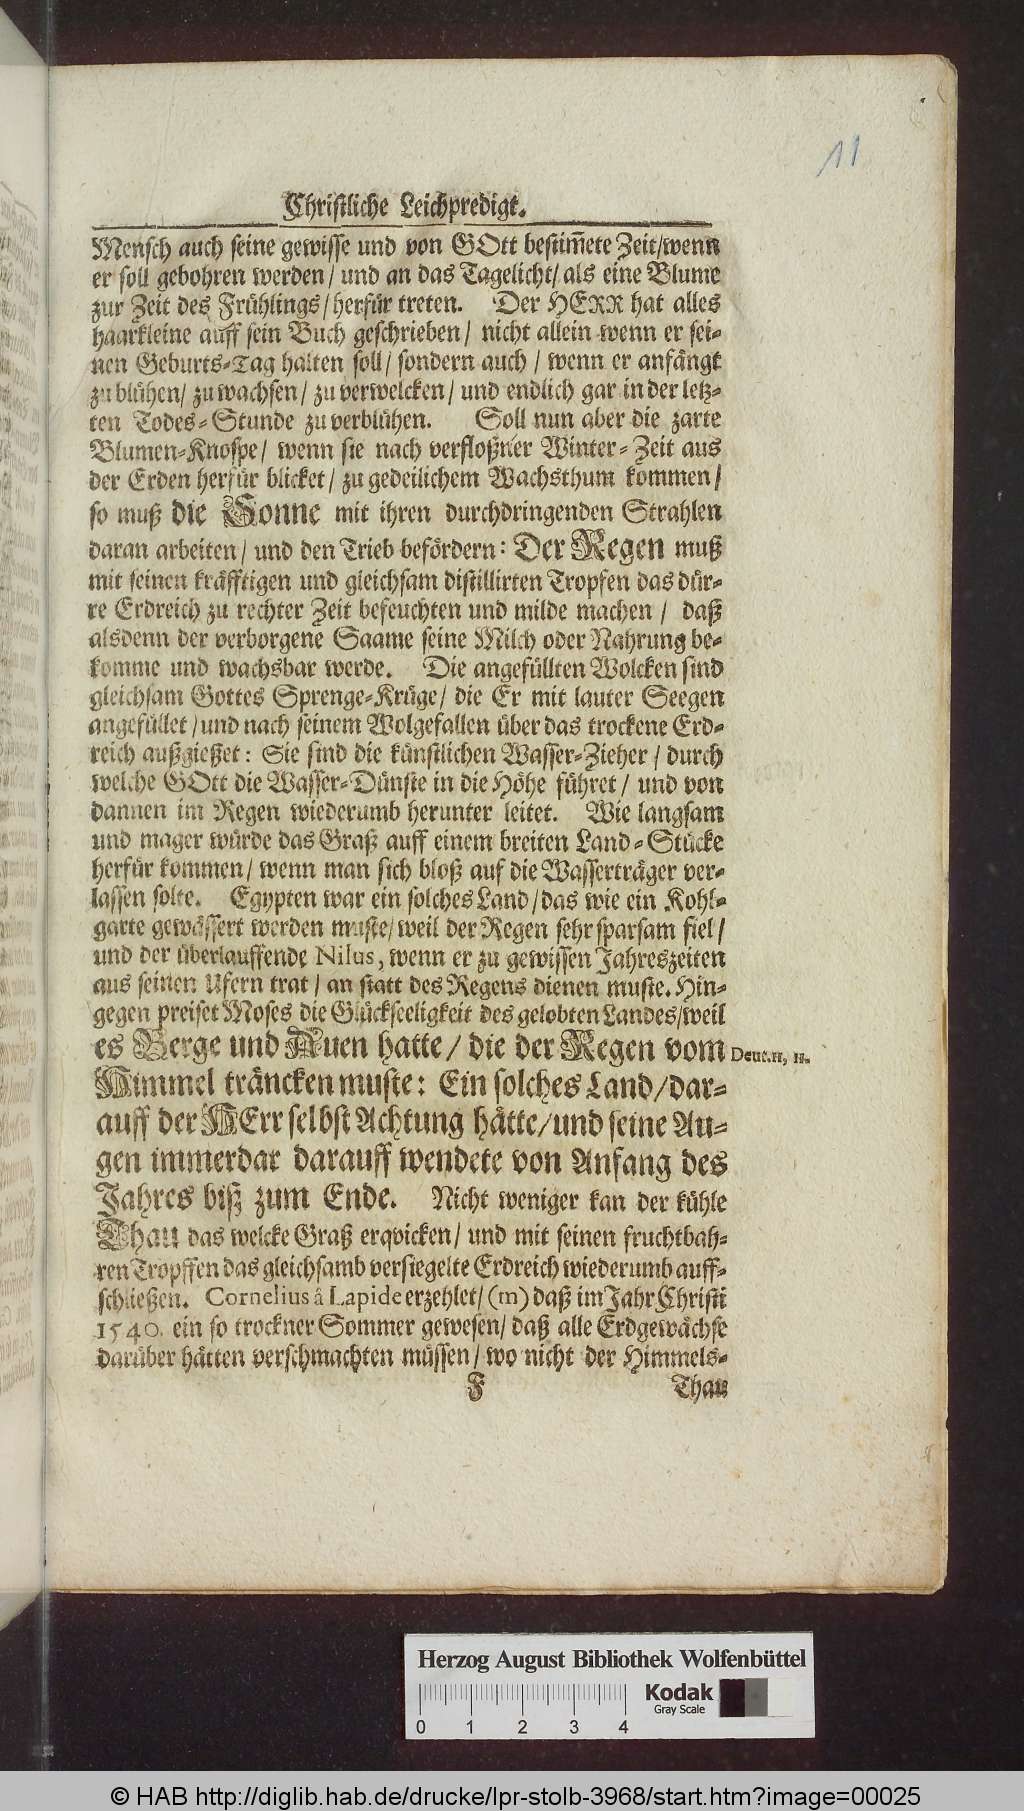 11
Christliche Leichpredigt.
Mensch auch seine gewisse und von GOtt bestim̃ete Zeit/wenn
er soll gebohren werden/ und an das Tagelicht/ als eine Blume
zur Zeit des Frühlings/ herfür treten. Der HERR hat alles
haarkleine auff sein Buch geschrieben/ nicht allein wenn er sei-
nen Geburts-Tag halten soll/ sondern auch/ wenn er anfängt
zu blühen/ zu wachsen/ zu verwelcken/ und endlich gar in der letz-
ten Todes-Stunde zu verblühen. Soll nun aber die zarte
Blumen-Knospe/ wenn sie nach verfloßner Winter-Zeit aus
der Erden herfür blicket/ zu gedeilichem Wachsthum kommen/
so muß die Sonne mit ihren durchdringenden Strahlen
daran arbeiten/ und den Trieb befördern: Der Regen muß
mit seinen kräfftigen und gleichsam distillirten Tropfen das dür-
re Erdreich zu rechter Zeit befeuchten und milde machen/ daß
alsdenn der verborgene Saame seine Milch oder Nahrung be-
komme und wachsbar werde. Die angefüllten Wolcken sind
gleichsam Gottes Sprenge-Krüge/ die Er mit lauter Seegen
angefüllet/ und nach seinem Wolgefallen über das trockene Erd-
reich außgießet: Sie sind die künstlichen Wasser-Zieher/ durch
welche GOtt die Wasser-Dünste in die Höhe führet/ und von
dannen im Regen wiederumb herunter leitet. Wie langsam
und mager würde das Graß auff einem breiten Land-Stücke
herfür kommen/ wenn man sich bloß auf die Wasserträger ver-
lassen solte. Egypten war ein solches Land/ das wie ein Kohl-
garte gewässert werden muste/ weil der Regen sehr sparsam fiel/
und der überlauffende Nilus, wenn er zu gewissen Jahreszeiten
aus seinen Ufern trat/ an statt des Regens dienen muste. Hin-
gegen preiset Moses die Glückseeligkeit des gelobten Landes/weil
es Berge und Auen hatte/ die der Regen vom Deut. 11, 11.
Himmel träncken muste: Ein solches Land/ dar-
auff der HErr selbst Achtung hätte/ und seine Au-
gen immerdar darauff wendete von Anfang des
Jahres biß zum Ende. Nicht weniger kan der kühle
Thau das welcke Graß erqvicken/ und mit seinen fruchtbah-
ren Tropffen das gleichsamb versiegelte Erdreich wiederumb auff-
schließen. Cornelius â Lapide erzehlet/ (m) daß im Jahr Christi
1540. ein so trockner Sommer gewesen/ daß alle Erdgewächse
darüber hätten verschmachten müssen/ wo nicht der Himmels-
F Thau
Herzog August Bibliothek Wolfenbüttel
Kodak
Gray Scale
0 1 2 3 4
© HAB http://diglib.hab.de/drucke/lpr-stolb-3968/start.htm?image=00025